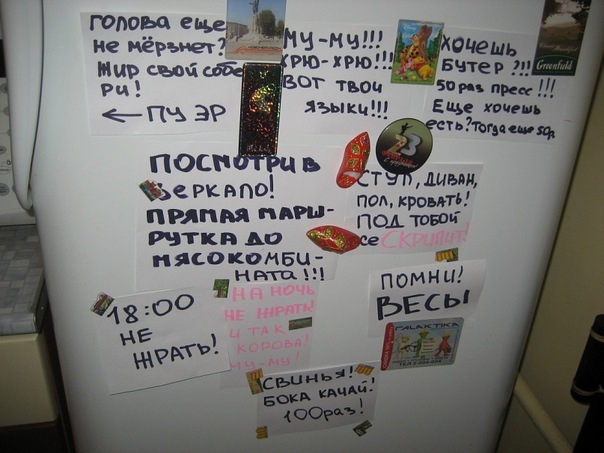 ГОЛОВА ЕЩЕ
НЕ МЁРЗНЕТ?
ЖИР СВОЙ СОБЕ
РИ!
← ПУ ЭР
МУ-МУ!!!
ХРЮ-ХРЮ!!!
ВОТ ТВОИ
ЯЗЫКИ!!!
ХОЧЕШЬ
БУТЕР?!!!
50 РАЗ ПРЕСС!!!
ЕЩЕ ХОЧЕШЬ
ЕСТЬ? ТОГДА ЕЩЕ 50р.
Greenfield
23
ПОСМОТРИ В
ЗЕРКАЛО!
ПРЯМАЯ МАРШ-
РУТКА ДО
МЯСОКОМБИ-
НАТА!!!
СТУЛ, ДИВАН,
ПОЛ, КРОВАТЬ!
ПОД ТОБОЙ
ВСЕ СКРИПИТ!
18:00
НЕ
ЖРАТЬ!
НА НОЧЬ
НЕ ЖРАТЬ!
И ТАК
КОРОВА!
МУ-МУ!
ПОМНИ!
ВЕСЫ
GALAKTIKA
СВИНЬЯ!
БОКА КАЧАЙ!
100 раз!